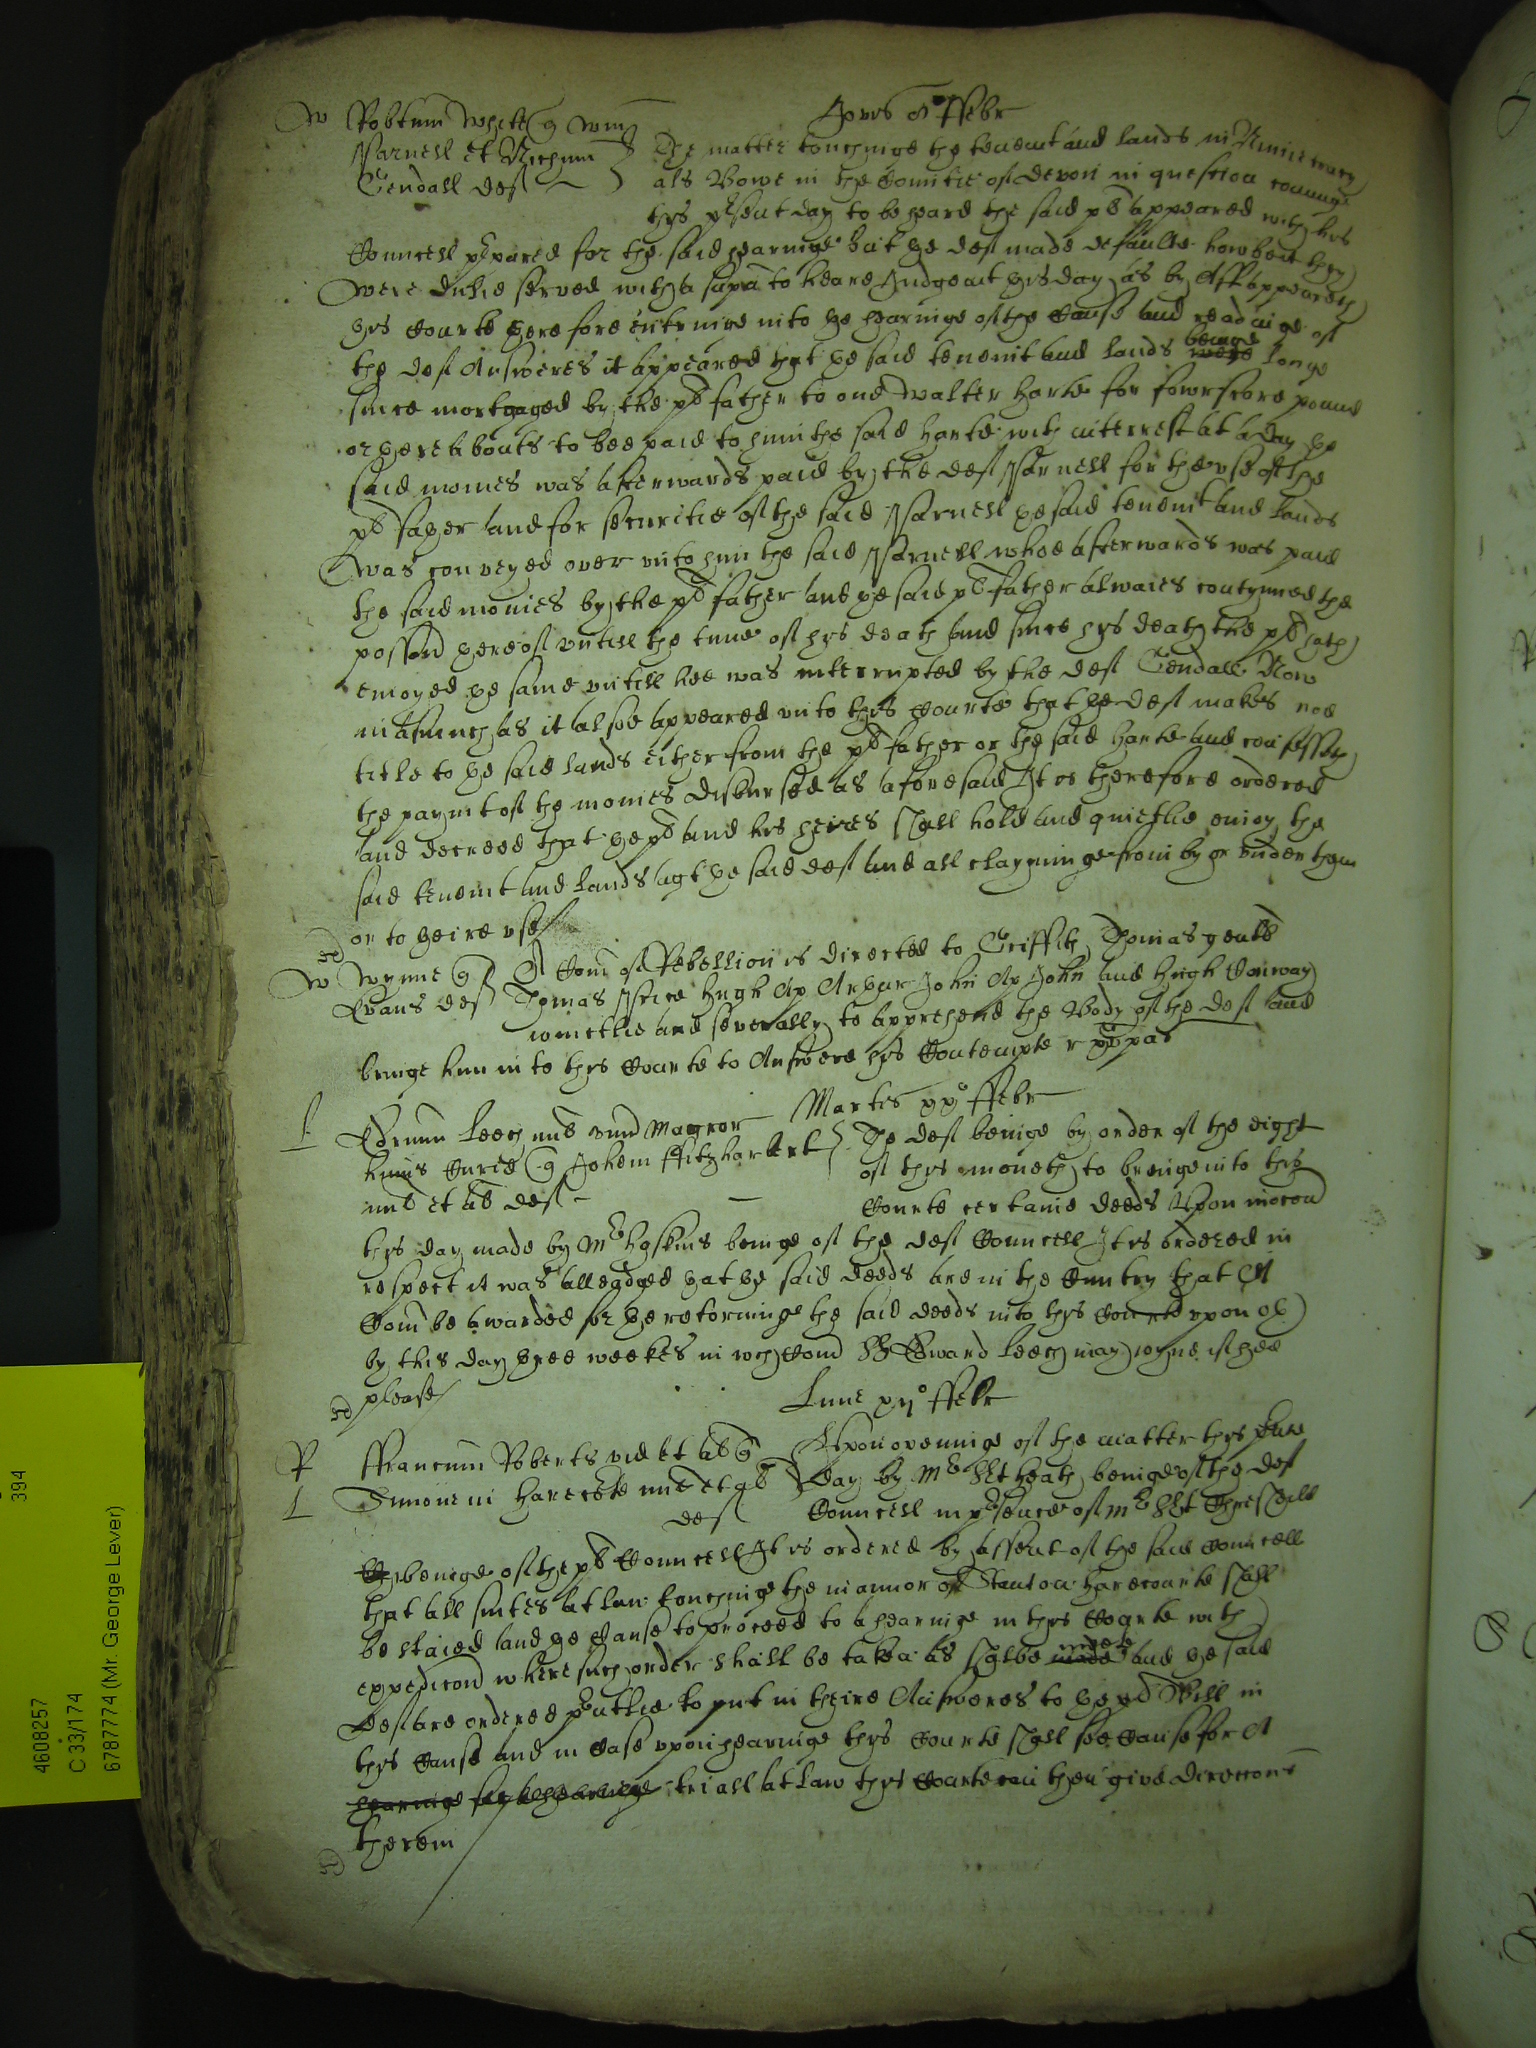 Jovis 8o ffebr
W Robtum White q Wm
Parnell et Richum
Tendall def
The matter touchinge the tenemt and lands in Nimet tracy
als Bowe in the Countie of Devon in question cominge
this pesent day to be heard the said plt appeared with his
Councell pepared for the said hearinge but the def made defaulte howbeit they
were dulie served with a supa to heare Judgemt this day as by Afft appeareth
this Courte therefore entringe into the hearinge of the Cause and readinge of
the def Answeres it appeared that the said tenemt and lands were beinge longe
since mortgaged by the plt father to one Walter Harte for fowrscore pound
or thereabouts to bee paid to him the said Harte with interrest at a day the
said monies was afterwards paid by the def Parnell for the use of the
plt father and for securitie of the said Parnell the said tenemt and lands
was conveyed over unto him the said Parnell whoe afterwards was paid
the said monies by the plt father and the said plt father alwaies contynued the
possion thereof untill the time of his death and since his death the plt hath
enioyed the same untill hee was interrupted by the def Tendall Now
inasmuch as it alsoe appeared unto this Courte that the def makes noe
title to the said lands either from the plt father or the said Harte and confesseth
the paymt of the monies disbursed as aforesaid It is therefore ordered
and decreed that the plt and his heires shall hold and quietlie enioy the
said tenemt and lands agt the said def and all clayminge from by or under them
or to theire use
W Wynne q
Evans def
A Com of Rebellion is directed to Griffith Thomas gent
Thomas Price Hugh Ap Arthur John Ap John and Hugh Conway
iointlie and severally to apprehend the Body of the def and
bringe him in to this Courte to Answere his Contempte
Martis ffebr
L Edrum Leech mil
huius Curie q Johem ffitzharbert
mil et al def
The def beinge by order of the eight
of this moneth to bringe into this
Courte certaine deeds Upon mocon
this day made by Mr Hoskins beinge of the def Councell It is ordered in
respect it was alleadged that the said deeds are in the Cuntry that A
Com be awarded for the retorninge the said deeds into this Courte upon oth
by this day three weekes in wch Com Sr Edward Leech may ioyne if hee
please
Lune ffebr
R ffrancum Roberts vid et al q
L Simonem Harecote mil et al
def
Upon openinge of the matter this pesent
day by Mr Sgt Heath beinge of the def
Councell in pesence of Mr Sgt Thresshall
beinge of the plt Councell It is ordered by assent of the said Councell
that all suites at law touchinge the mannor of Stanton Harecourte shall
be staied and the Cause to proceed to a hearinge in this Courte with
expedicon where such order shall be taken as shalbe made meete and the said
def are ordered pesentlie to put in theire Answeres to the plt Bill in
this Cause and in Case upon hearinge this Courte shall see Cause for A
hearinge triall at law this Courte can then give direccons
therein
394
4608257
C 33/174
6787774 (Mr. George Lever)